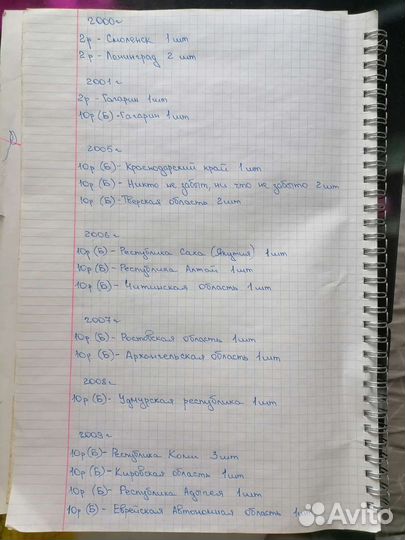 2000г
2р - Смоленск 1 шт
2р - Ленинград 2 шт
2001г
2р - Гагарин 1 шт
10р (Б) - Гагарин 1 шт
2005г
10р (Б) - Краснодарский край 1 шт
10р (Б) - Никто не забыт, ни что не забыто 2 шт
10р (Б) - Тверская область 2 шт
2006г
10р (Б) - Республика Саха (Якутия) 1 шт
10р (Б) - Республика Алтай 1 шт
10р (Б) - Читинская область 1 шт
2007г
10р (Б) - Ростовская область 1 шт
10р (Б) - Архангельская область 1 шт
2008г
10р (Б) - Удмурская республика 1 шт
2009г
10р (Б) - Республика Коми 3 шт
10р (Б) - Кировская область 1 шт
10р (Б) - Республика Адыгея 1 шт
10р (Б) - Еврейская Автономная область 1
Avito